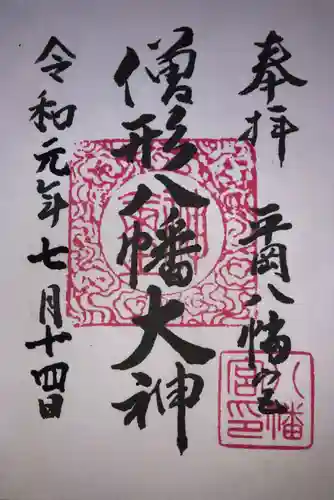 奉拝
平岡八幡宮
僧形八幡大神
令和元年七月十四日
八幡
宮印